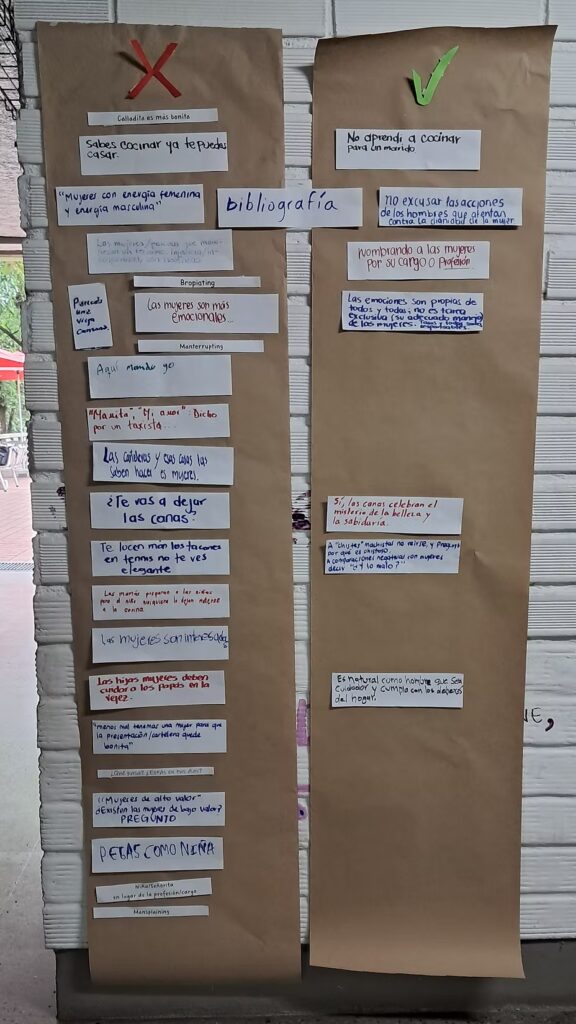 Calladita es más bonita
Sabes cocinar ya te puedes
casar.
"Mujeres con energía femenina
y energía masculina"
bibliografía
Las mujeres
Bropiating
Pareces
una
vieja
Las mujeres son más
emocionales...
Manterrupting
Aquí mando yo
"Mi amor". Dicho
por un taxista...
Las
y esas cosas las
saben hacer es mujeres.
¿Te vas a dejar
las canas?
Te lucen más los tacones
en tennis no te ves
elegante
Las mamás preparan a las niñas
pero al niño
a la cocina
Las mujeres son interesadas
Las hijas mujeres deben
cuidar a los papás en la
vejez.
"menos mal tenemos una mujer para que
la presentación/cartelera quede
bonita"
"Mujeres de alto valor"
¿Existen las mujeres de bajo valor?
PREGUNTO
PEGAS COMO NIÑA
Niña/Señorita
en lugar de la profesión/cargo
Mansplaining
No aprendí a cocinar
para un marido
no excusar las acciones
de los hombres que atentan
contra la dignidad de la mujer
Nombrando a las mujeres
por su cargo o Profesión.
Las emociones son propias de
todos y todas, no es tarea
exclusiva (su adecuado manejo)
de las mujeres. Todos y todas somos
responsables
Sí, las canas celebran el
misterio de la belleza y
la sabiduría.
A "chistes" machistas no reirse, y preguntar
por qué es chistoso.
A comparaciones negativas con mujeres
decir "¿Y lo malo?"
Es natural como hombre que sea
cuidador y cumpla con los deberes
del hogar.
NE,